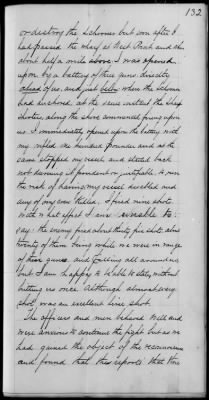 132
or destroy the schooner but soon after I
had passed the wharf at West Point and when
about half a mile above I was opened
upon by a battery of three guns directly
ahead of us, and just below where the schooner
had anchored, at the same instant the sharp
shooters along the shore commenced firing upon
us. I immediately opened upon the battery with
my rifled one hundred pounder and at the
same stopped my vessel and started back
not deeming it prudent or justifiable to run
the risk of having my vessel disabled and
any of my crew killed, I fired nine shots.
with what effect I am unable to
say: the enemy fired about thirty five shots about
twenty of them being while we were in range
of their guns and falling all around us
but I am happy to be able to state, without
hitting us once. Although almost every
shot was an excellent line shot.
The officers and men behaved well and
were anxious to continue the fight but as we
had gained the object of the reconnaissance
and found that the reports that the